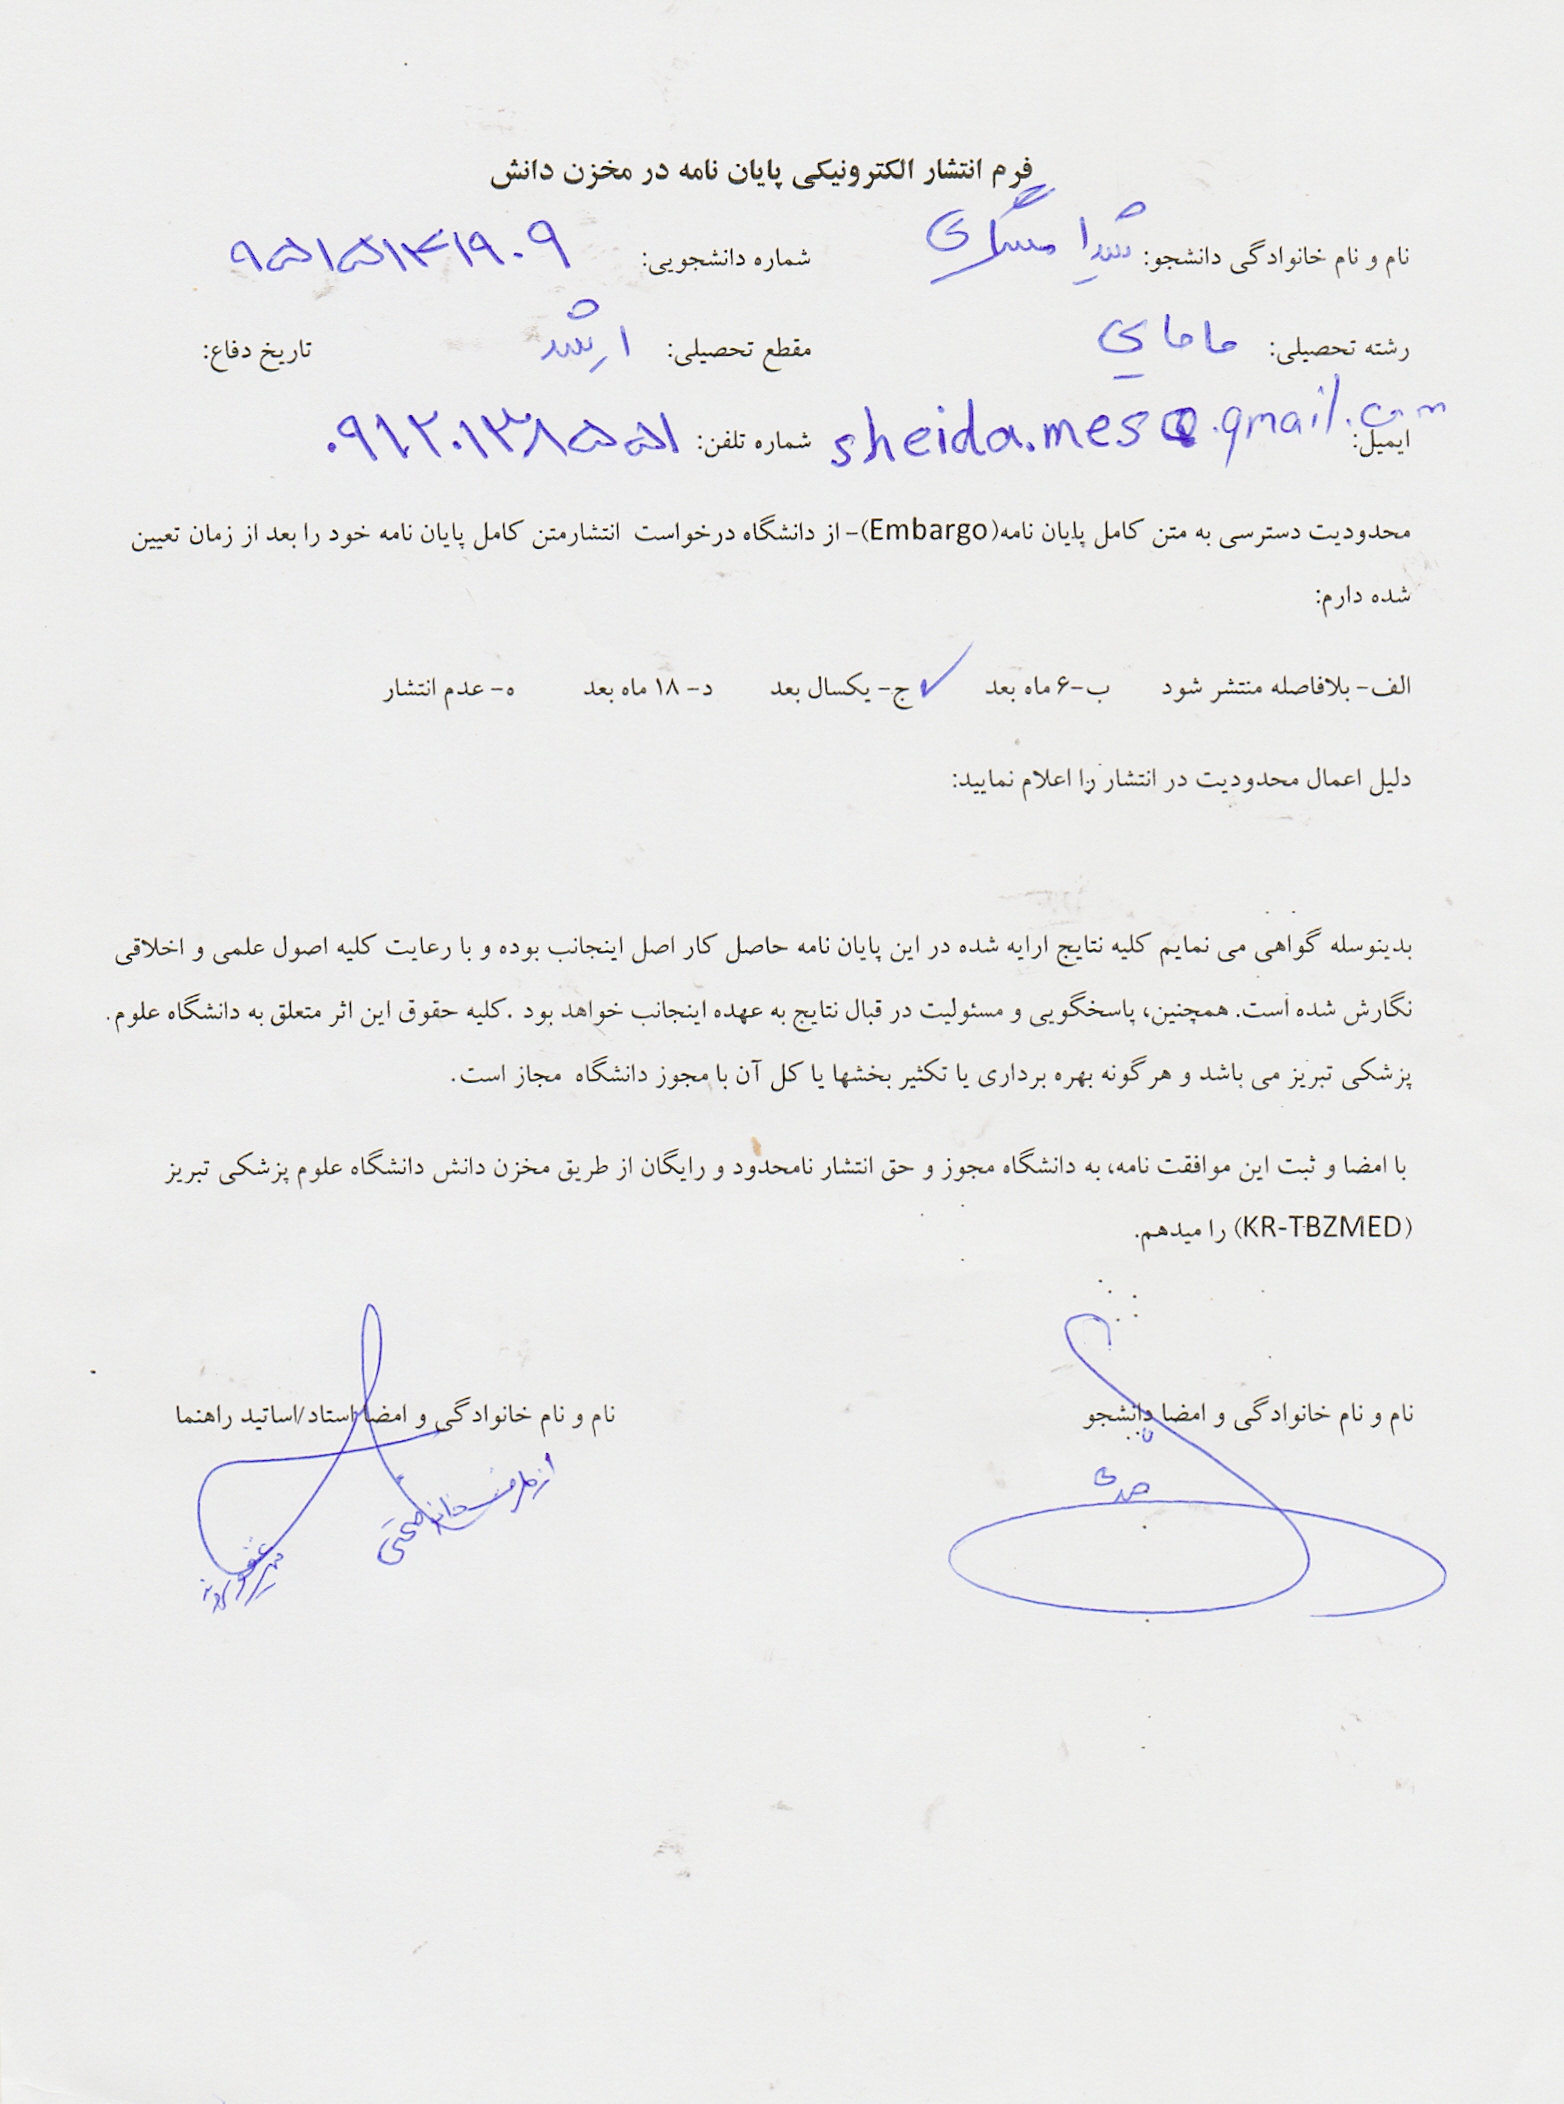 فرم انتشار الکترونیکی پایان نامه در مخزن دانش
نام و نام خانوادگی دانشجو: شیدا مسگری شماره دانشجویی: ۹۵۱۵۱۴۱۹۰۹
رشته تحصیلی: مامایی مقطع تحصیلی: ارشد تاریخ دفاع:
ایمیل: sheida.mes@.gmail.com شماره تلفن: ۰۹۱۲۰۱۳۸۵۵۱
محدودیت دسترسی به متن کامل پایان نامه(Embargo)- از دانشگاه درخواست انتشارمتن کامل پایان نامه خود را بعد از زمان تعیین
شده دارم:
الف- بلافاصله منتشر شود ب-۶ ماه بعد ✓ ج- یکسال بعد د- ۱۸ ماه بعد ه- عدم انتشار
دلیل اعمال محدودیت در انتشار را اعلام نمایید:
بدینوسله گواهی می نمایم کلیه نتایج ارایه شده در این پایان نامه حاصل کار اصل اینجانب بوده و با رعایت کلیه اصول علمی و اخلاقی
نگارش شده است. همچنین، پاسخگویی و مسئولیت در قبال نتایج به عهده اینجانب خواهد بود .کلیه حقوق این اثر متعلق به دانشگاه علوم
پزشکی تبریز می باشد و هرگونه بهره برداری یا تکثیر بخشها یا کل آن با مجوز دانشگاه مجاز است.
با امضا و ثبت این موافقت نامه، به دانشگاه مجوز و حق انتشار نامحدود و رایگان از طریق مخزن دانش دانشگاه علوم پزشکی تبریز
(KR-TBZMED) را میدهم.
نام و نام خانوادگی و امضا دانشجو نام و نام خانوادگی و امضا استاد/اساتید راهنما
از طرف خانم